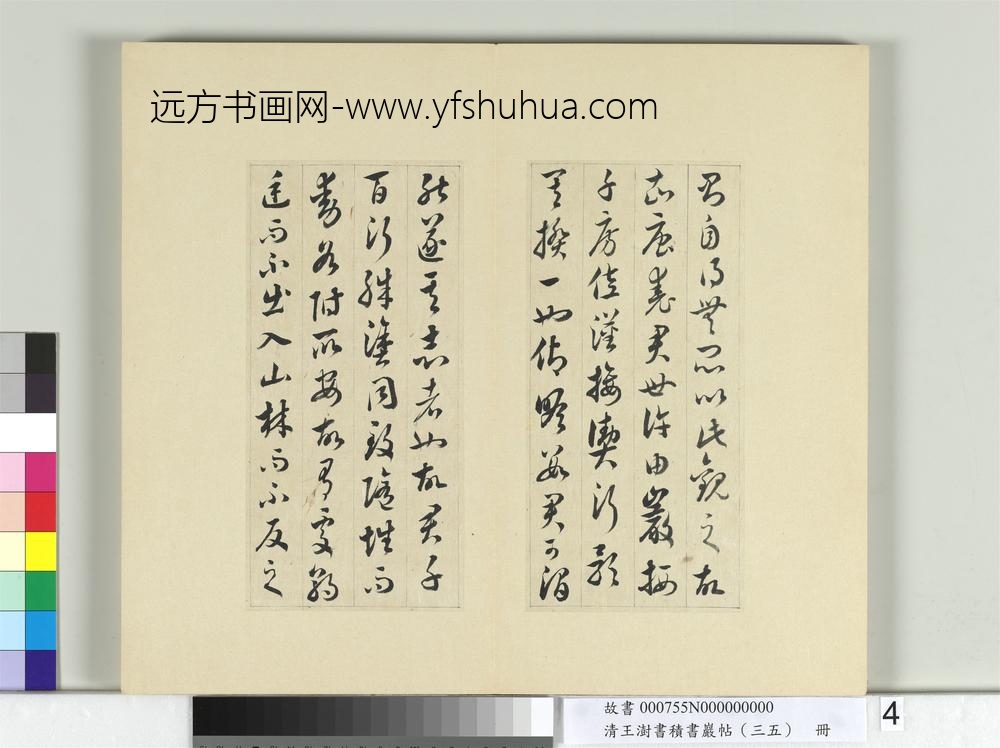 远方书画网-www.yfshuhua.com
則自得無悶以此觀之故
知唐堯君世許由巖栖
子房佐漢接輿行歌
其揆一也仰瞻數君可謂
能遂其志者也故君子
百行殊塗同致循性而
動各附所安故有處朝
廷而不出入山林而不反之
故書 000755N000000000
清王澍書積書巖帖（三五） 冊
4